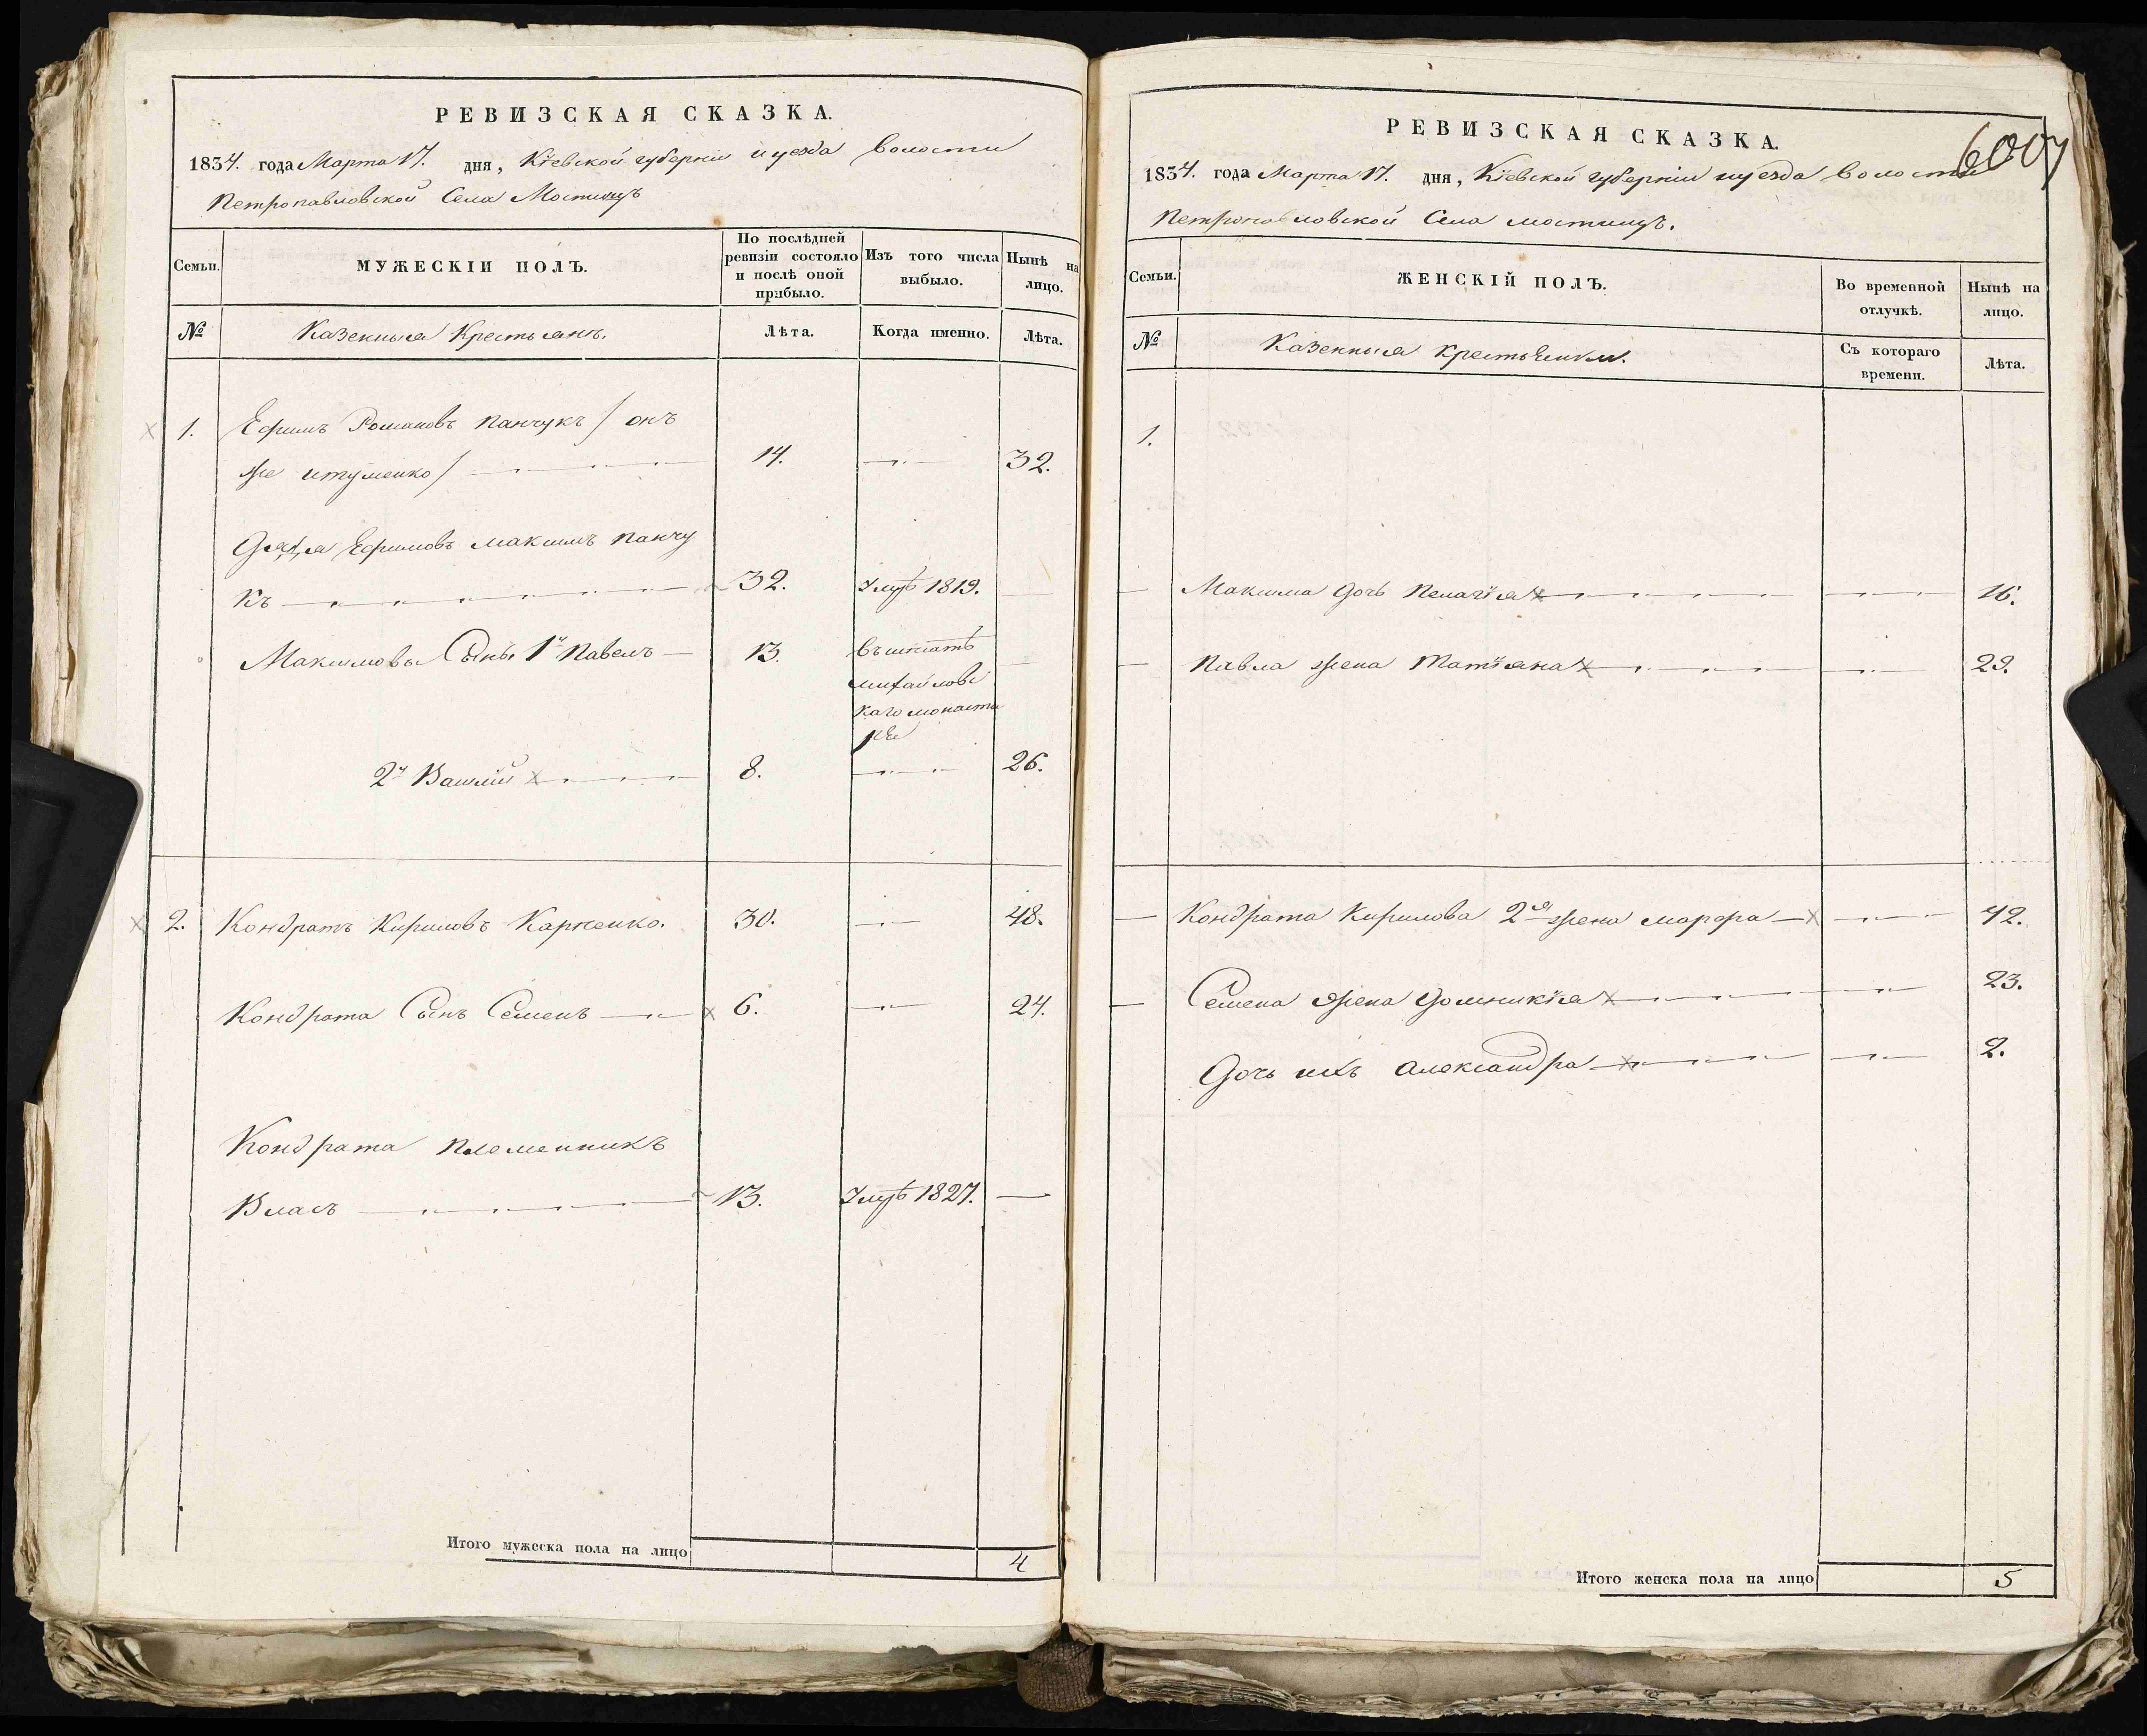 РЕВИЗСКАЯ СКАЗКА.
1834. года Марта 17. дня, Кіевской губерніи и уезда волости
Петропавловской Села Мостищъ
Семьи.
МУЖЕСКІЙ ПОЛЪ.
По послѣдней ревизіи состояло и послѣ оной прибыло.
Изъ того числа выбыло.
Нынѣ на лицо.
№
Казенныя Крестьянъ.
Лѣта.
Когда именно.
Лѣта.
1. Ефимъ Романовъ Панчукъ / онъ
же Игуменко / 14. 32.
Дядя Ефимовъ Максимъ Панчу
къ 32. Умре 1819.
Максимовы Сыны 1й Павелъ 13. Въ штатъ
михайловс
каго монасты
ря
2й Василій 8. 26.
2. Кондратъ Кириловъ Карпенко. 30. 48.
Кондрата Сынъ Семенъ 6. 24.
Кондрата Племенникъ
Власъ 13. Умре 1827.
Итого мужеска пола на лицо 4
РЕВИЗСКАЯ СКАЗКА.
6007
1834. года Марта 17. дня, Кіевской губерніи и уезда волости
Петропавловской Села мостищъ.
Семьи.
ЖЕНСКІЙ ПОЛЪ.
Во временной отлучкѣ.
Нынѣ на лицо.
№
Казенныя крестьянки.
Съ котораго времени.
Лѣта.
1.
Максима дочь Пелагія 16.
Павла жена Татіяна 29.
Кондрата Кирилова 2я жена марфа 42.
Семена жена Домникія 23.
Дочь ихъ Александра 2.
Итого женска пола на лицо 5